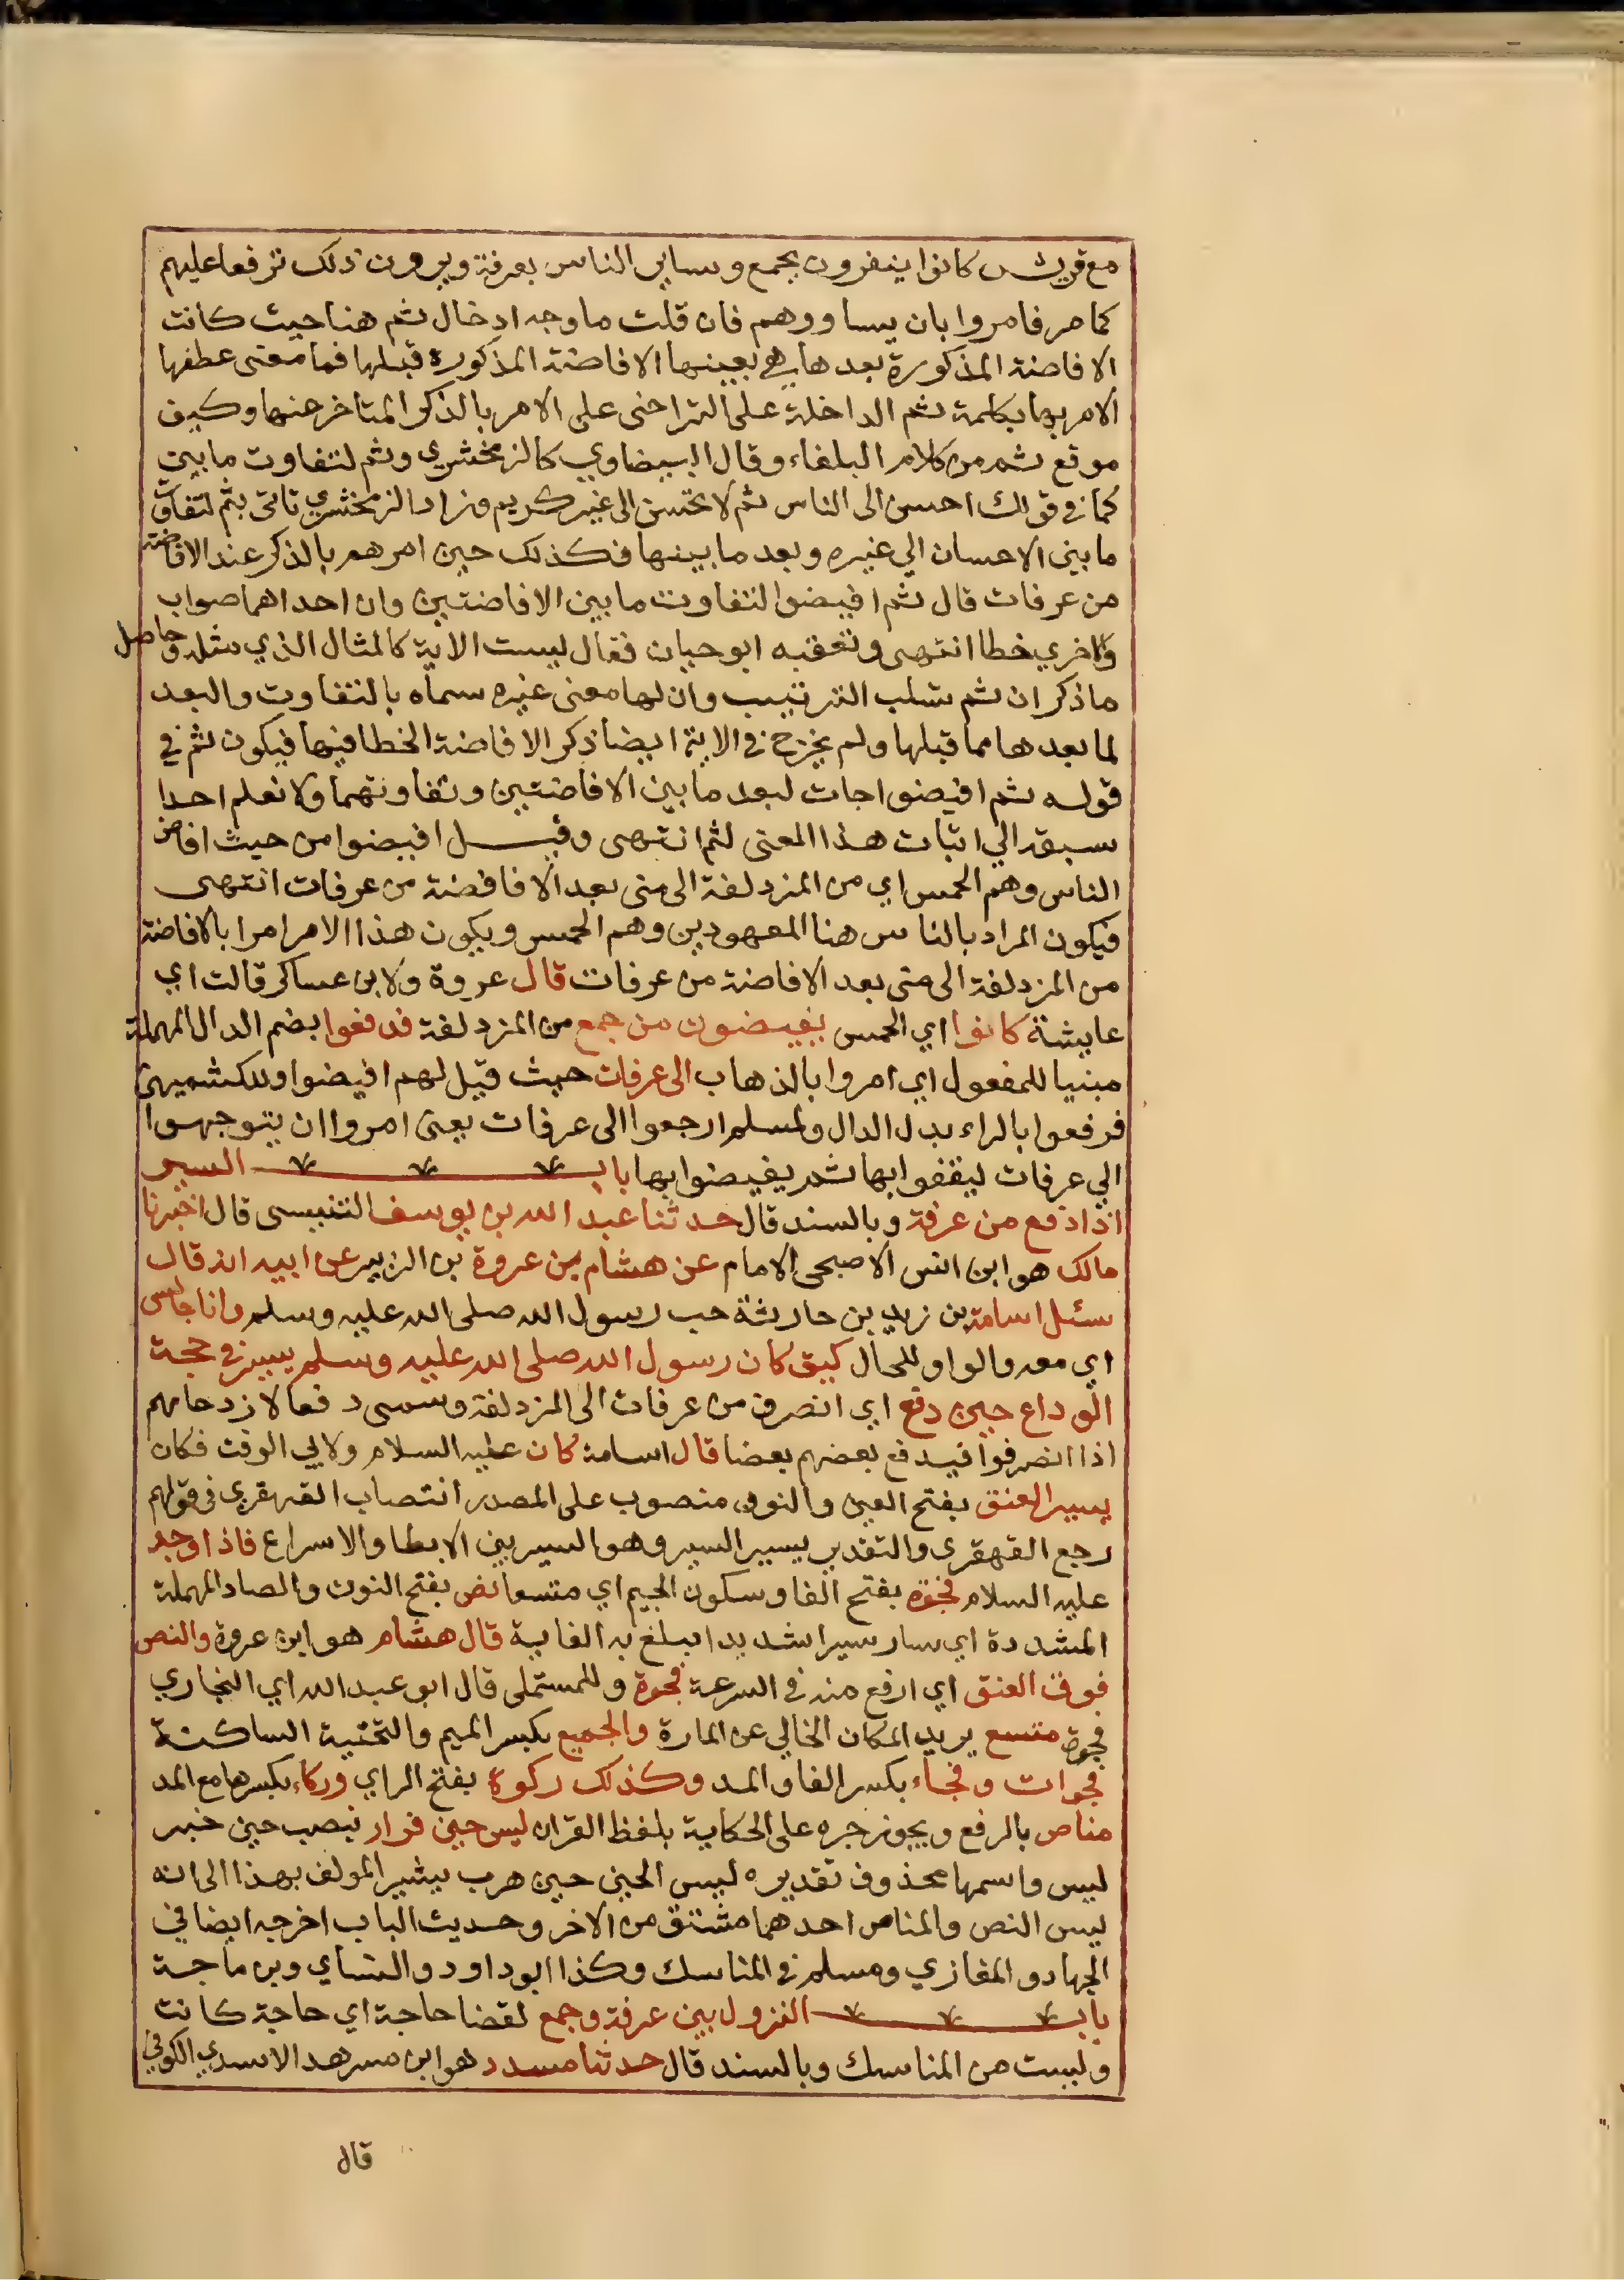 مع قريش كانوا ينفرون بجمع وساير الناس بعرفة ويرون ذلك ترفعا عليهم
كما مر فامروا بان يساووهم فان قلت ما وجه ادخال ثم هنا حيث كانت
الافاضة المذكورة بعدها هي بعينها الافاضة المذكورة قبلها فما معنى عطفها
الامر بها بكلمة ثم الداخلة على التراخى على الامر بالذكر المتاخر عنها وكيف
موقع ثم من كلام البلغاء وقال البيضاوي كالزمخشري وثم لتفاوت ما بين
كما في قولك احسن الى الناس ثم لا تحسن الى غير كريم وزاد الزمخشري تاتى بثم لتفاوت
ما بين الاحسان الي غيره وبعد ما بينها فكذلك حين امرهم بالذكر عند الافاضة
من عرفات قال ثم افيضوا لتفاوت ما بين الافاضتين وان احداهما صواب
والاخري خطا انتهى وتعقبه ابو حيان فقال ليست الاية كالمثال الذي مثله وحاصل
ما ذكر ان ثم تسلب الترتيب وان لها معنى غيره سماه بالتفاوت والبعد
لما بعدها مما قبلها ولم يخرج في الاية ايضا ذكر الافاضة الخطا فيها فيكون ثم في
قوله ثم افيضوا جات لبعد ما بين الافاضتين وتفاوتهما ولا نعلم احدا
سبقه الي اثبات هذا المعنى لثم انتهى وقيل افيضوا من حيث افاض
الناس وهم الحمس اي من المزدلفة الى منى بعد الافافضة من عرفات انتهى
فيكون المراد بالناس هنا المعهودين وهم الحمس ويكون هذا الامر امرا بالافاضة
من المزدلفة الى منى بعد الافاضة من عرفات قال عروة ولابن عساكر قالت اي
عايشة كانوا اي الحمس يفيضون من جمع من المزدلفة فدفعوا بضم الدال المهملة
مبنيا للمفعول اي امروا بالذهاب الى عرفات حيث قيل لهم افيضوا وللكشميهنى
فرفعوا بالراء بدل الدال ولمسلم ارجعوا الى عرفات يعنى امروا ان يتوجهوا
الي عرفات ليقفوا بها ثم يفيضوا بها باب السير
اذا دفع من عرفة وبالسند قال حدثنا عبد الله بن يوسف التنيسى قال اخبرنا
مالك هو ابن انس الاصبحى الامام عن هشام بن عروة بن الزبير عن ابيه انه قال
سئل اسامة بن زيد بن حارثة حب رسول الله صلى الله عليه وسلم وانا جالس
اي معه والواو للحال كيف كان رسول الله صلى الله عليه وسلم يسير في حجة
الوداع حين دفع اي انصرف من عرفات الى المزدلفة وسمى دفعا لازدحامهم
اذا انصرفوا فيدفع بعضهم بعضا قال اسامة كان عليه السلام ولابي الوقت فكان
يسير العنق بفتح العين والنون منصوب على المصدر انتصاب القهقري في قولهم
رجع القهقري والتقدير يسير السير وهو السير بين الابطا والاسراع فاذا وجد
عليه السلام فجوة بفتح الفا وسكون الجيم اي متسعا نص بفتح النون والصاد المهملة
المشددة اي سار سيرا شديدا يبلغ به الغاية قال هشام هو ابن عروة والنص
فوق العنق اي ارفع منه في السرعة فجوة وللمستملى قال ابو عبد الله اي البخاري
فجوة متسع يريد المكان الخالي عن المارة والجميع بكسر الميم والتحتية الساكنة
فجوات وفجاء بكسر الفا والمد وكذلك ركوة بفتح الراي وركاء بكسرها مع المد
مناص بالرفع ويجوز جره على الحكاية بلفظ القران ليس حين فرار نصب حين خبر
ليس واسمها محذوف تقديره ليس الحين حين هرب يشير المولف بهذا الى انه
ليس النص والمناص احدهما مشتق من الاخر وحديث الباب اخرجه ايضا في
الجهاد والمغازي ومسلم في المناسك وكذا ابو داود والنساي وبن ماجة
باب النزول بين عرفة وجمع لقضا حاجة اي حاجة كانت
وليست من المناسك وبالسند قال حدثنا مسدد هو ابن مسرهد الاسدي الكوفي
قال